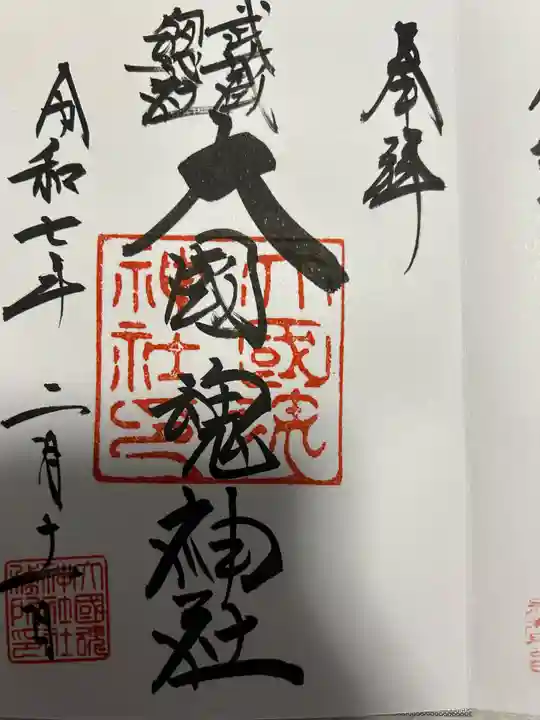 奉拝
武蔵
総社
大國魂神社
大國魂神社印
令和七年二月十一日
大國魂神社